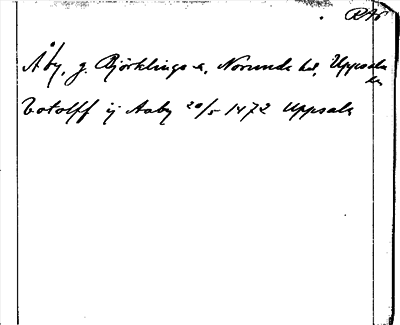 RAÖ
Åby, g. Björklings s, Norunda hd, Uppsala
län
Botolff ij Aaby 20/5 1472 Uppsala